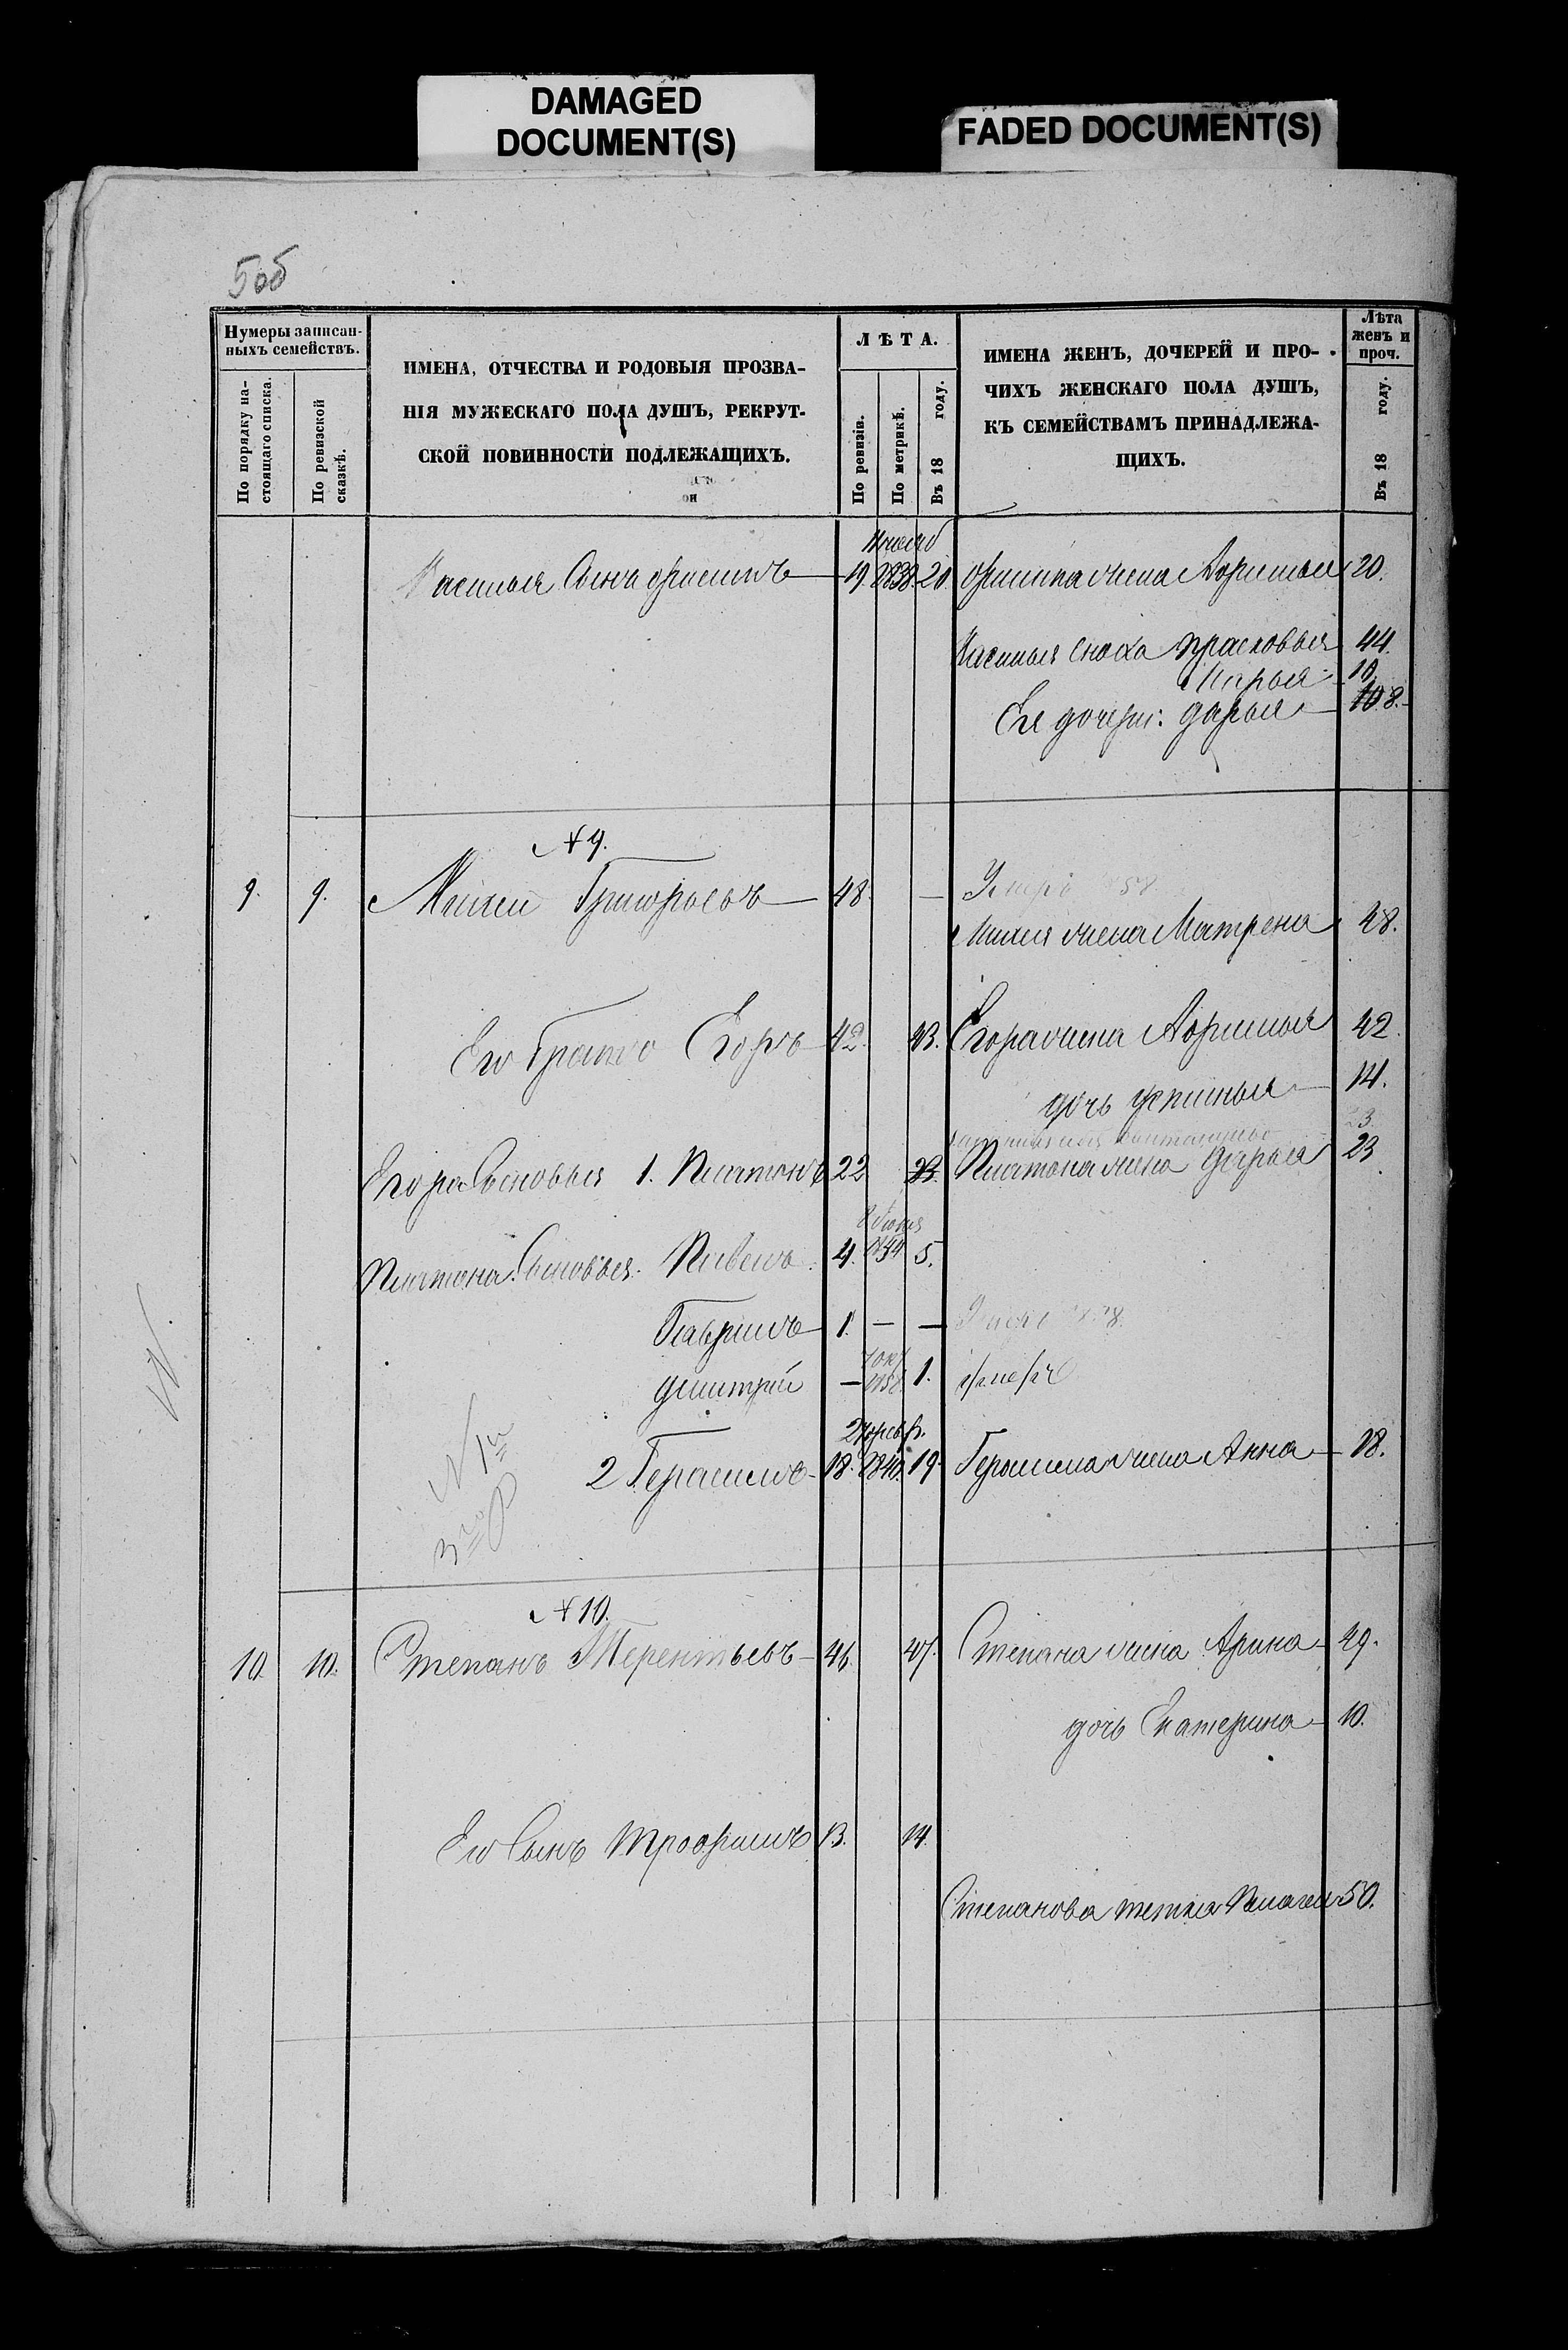 DAMAGED
DOCUMENT(S)
FADED DOCUMENT(S)
5об
Нумеры записан-
ныхъ семействъ.
По порядку на-
стоящаго списка.
По ревизской
сказкѣ.
ИМЕНА, ОТЧЕСТВА И РОДОВЫЯ ПРОЗВА-
НІЯ МУЖЕСКАГО ПОЛА ДУШЪ, РЕКРУТ-
СКОЙ ПОВИННОСТИ ПОДЛЕЖАЩИХЪ.
ЛѢТА.
По ревизіи.
По метрикѣ.
Въ 18 году.
ИМЕНА ЖЕНЪ, ДОЧЕРЕЙ И ПРО-
ЧИХЪ ЖЕНСКАГО ПОЛА ДУШЪ,
КЪ СЕМЕЙСТВАМЪ ПРИНАДЛЕЖА-
ЩИХЪ.
Лѣта
женъ и
проч.
Въ 18 году.
Василья Сынъ 19. 1838. 20. жена 20.
Василья сноха Прасковья 44.
Марья 10
Ея дочери: Дарья 8.
№ 9.
9. 9. Михей Григорьевъ 48. — Умеръ 1858.
Михея жена Матрена 48.
Его братъ Егоръ 42. 43. Егора жена 42.
дочь 14.
23.
Егора Сыновья 1. Платонъ 22 23. Платона жена Дарья 23
Платона Сыновья. Павелъ 4. 1854 5.
Гавриилъ 1. — —
Дмитрій — 1858. 1. умеръ
2 Герасимъ 18. 1840. 19. Герасима жена Анна 18.
№ 10.
10. 10. Степанъ Терентьевъ 46. 47. Степана жена Арина 49.
дочь Екатерина 10.
Его Сынъ Трофимъ 13. 14.
Степанова тетка 50.